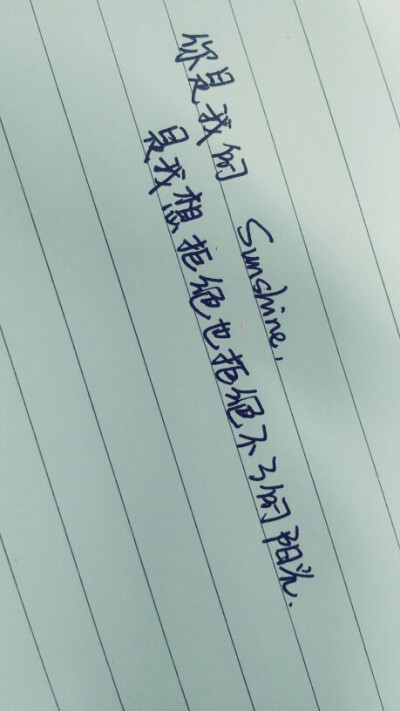 你是我的 Sunshine,
是我想拒绝也拒绝不了的阳光.